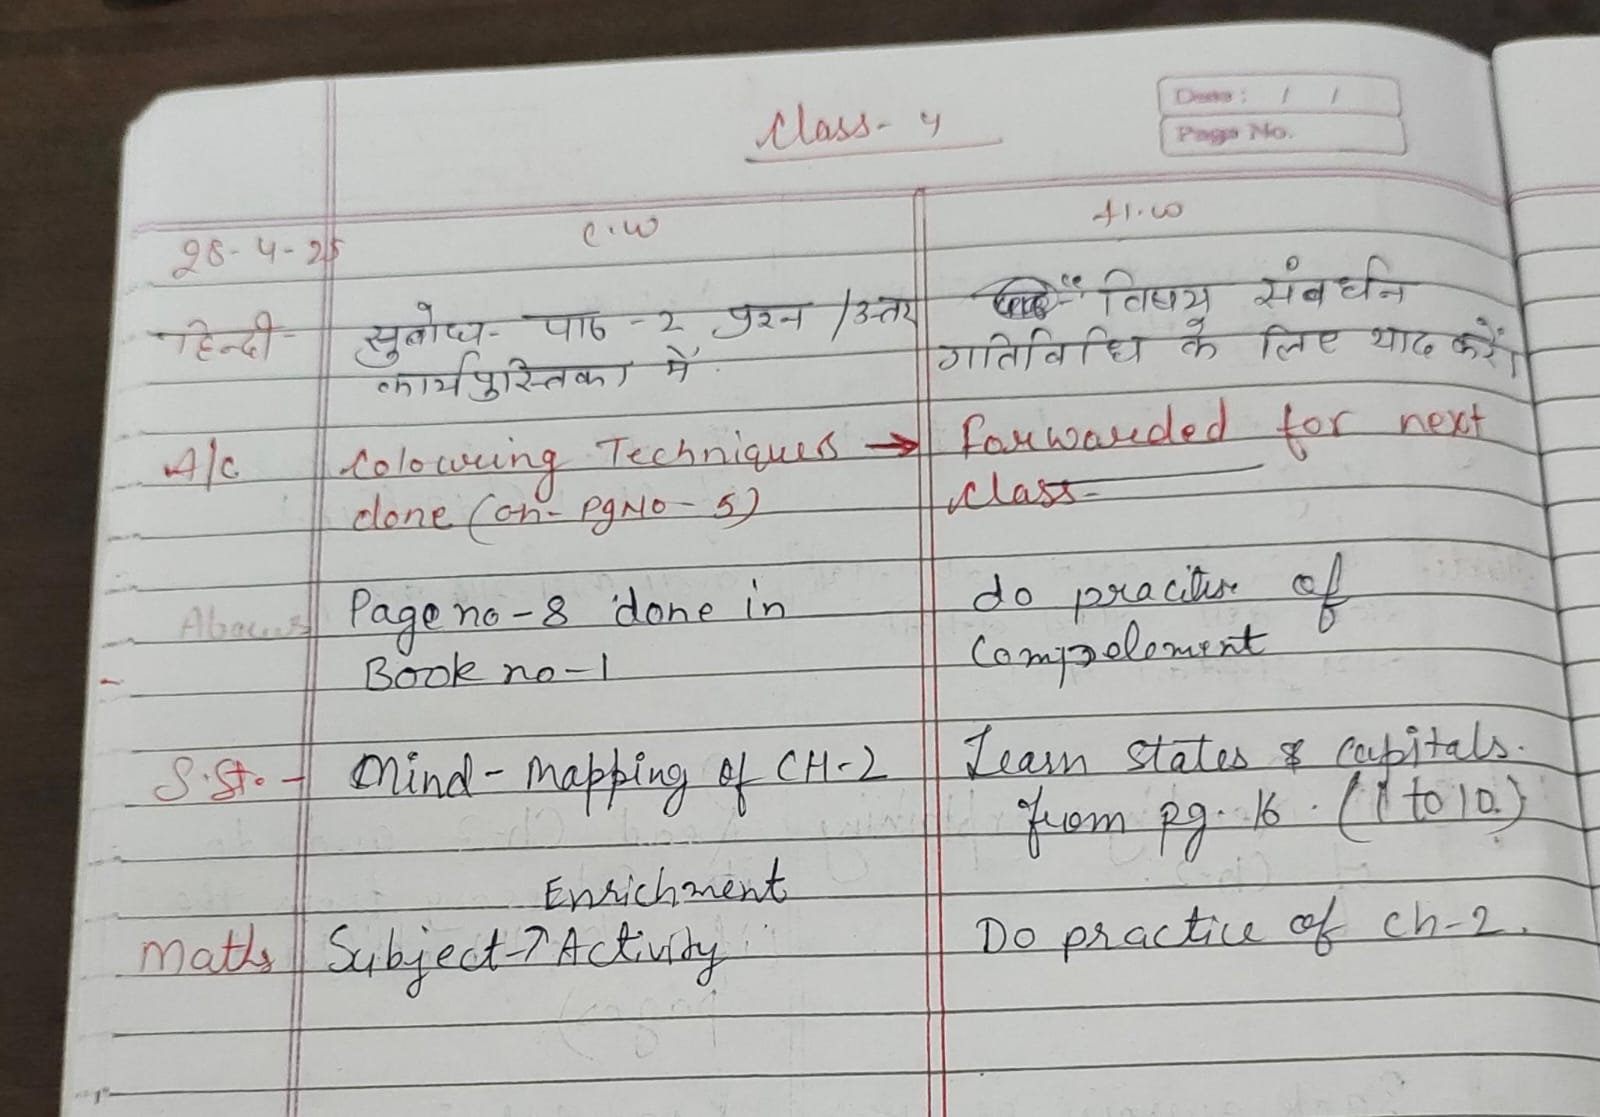 Date: / /
Page No.
Class- 4
C.W
H.W
28-4-25
हिन्दी- सुबोध- पाठ-2 प्रश्न/उत्तर
कार्यपुस्तिका में
" विषय संवर्धन
गतिविधि के लिए याद करें।
A/c Colouring Techniques →
done (on- pg No- 5)
Forwarded for next
class-
Page no-8 done in
Book no-1
do pracitise of
Complement
S.St. - Mind-Mapping of CH-2
Learn States & Capitals.
from pg. 16. (1 to 10.)
Enrichment
Maths Subject↗Activity
Do practice of ch-2.